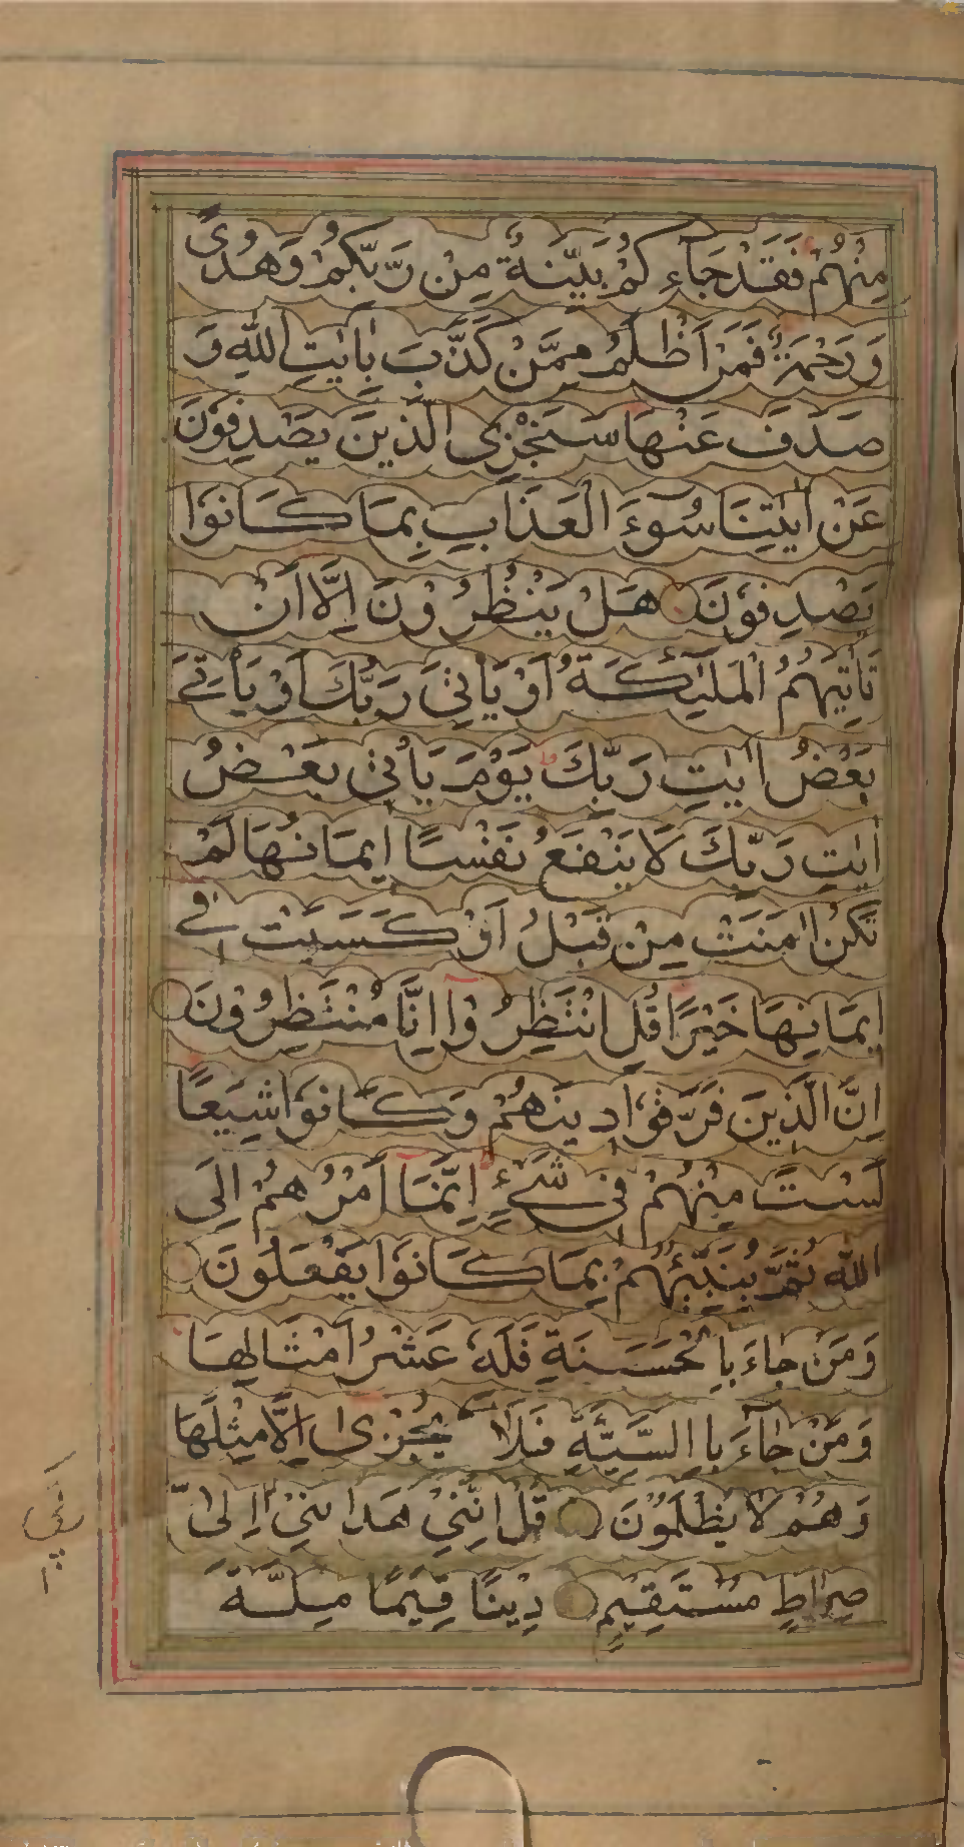 مِنْهُمْ فَقَدْ جَآءَكُمْ بَيِّنَةٌ مِنْ رَبِّكُمْ وَهُدًى
وَرَحْمَةٌ فَمَنْ اَظْلَمُ مِمَّنْ كَذَّبَ بِاٰيٰتِ اللّٰهِ وَ
صَدَفَ عَنْهَا سَنَجْزِى الَّذِينَ يَصْدِفُونَ
عَنْ اٰيٰتِنَا سُوٓءَ الْعَذَابِ بِمَا كَانُوْا
يَصْدِفُوْنَ هَلْ يَنْظُرُوْنَ اِلَّا اَنْ
تَاْتِيَهُمُ الْمَلٰٓئِكَةُ اَوْ يَاْتِىَ رَبُّكَ اَوْ يَاْتِىَ
بَعْضُ اٰيٰتِ رَبِّكَ يَوْمَ يَاْتِى بَعْضُ
اٰيٰتِ رَبِّكَ لَا يَنْفَعُ نَفْسًا اِيمَانُهَا لَمْ
تَكُنْ اٰمَنَتْ مِنْ قَبْلُ اَوْ كَسَبَتْ فِى
اِيمَانِهَا خَيْرًا قُلِ انْتَظِرُوْا اِنَّا مُنْتَظِرُوْنَ
اِنَّ الَّذِينَ فَرَّقُوْا دِينَهُمْ وَكَانُوْا شِيَعًا
لَسْتَ مِنْهُمْ فِى شَىْءٍ اِنَّمَا اَمْرُهُمْ اِلَى
اللّٰهِ ثُمَّ يُنَبِّئُهُمْ بِمَا كَانُوْا يَفْعَلُوْنَ
وَمَنْ جَاءَ بِالْحَسَنَةِ فَلَهٗ عَشْرُ اَمْثَالِهَا
وَمَنْ جَآءَ بِاالسَّيِّئَةِ فَلَا يُجْزٰى اِلَّا مِثْلَهَا
وَهُمْ لَا يُظْلَمُوْنَ قُلْ اِنَّنِىْ هَدٰىنِىْ اِلٰى
صِرَاطٍ مُسْتَقِيمٍ دِيْنًا قِيَمًا مِلَّةَ